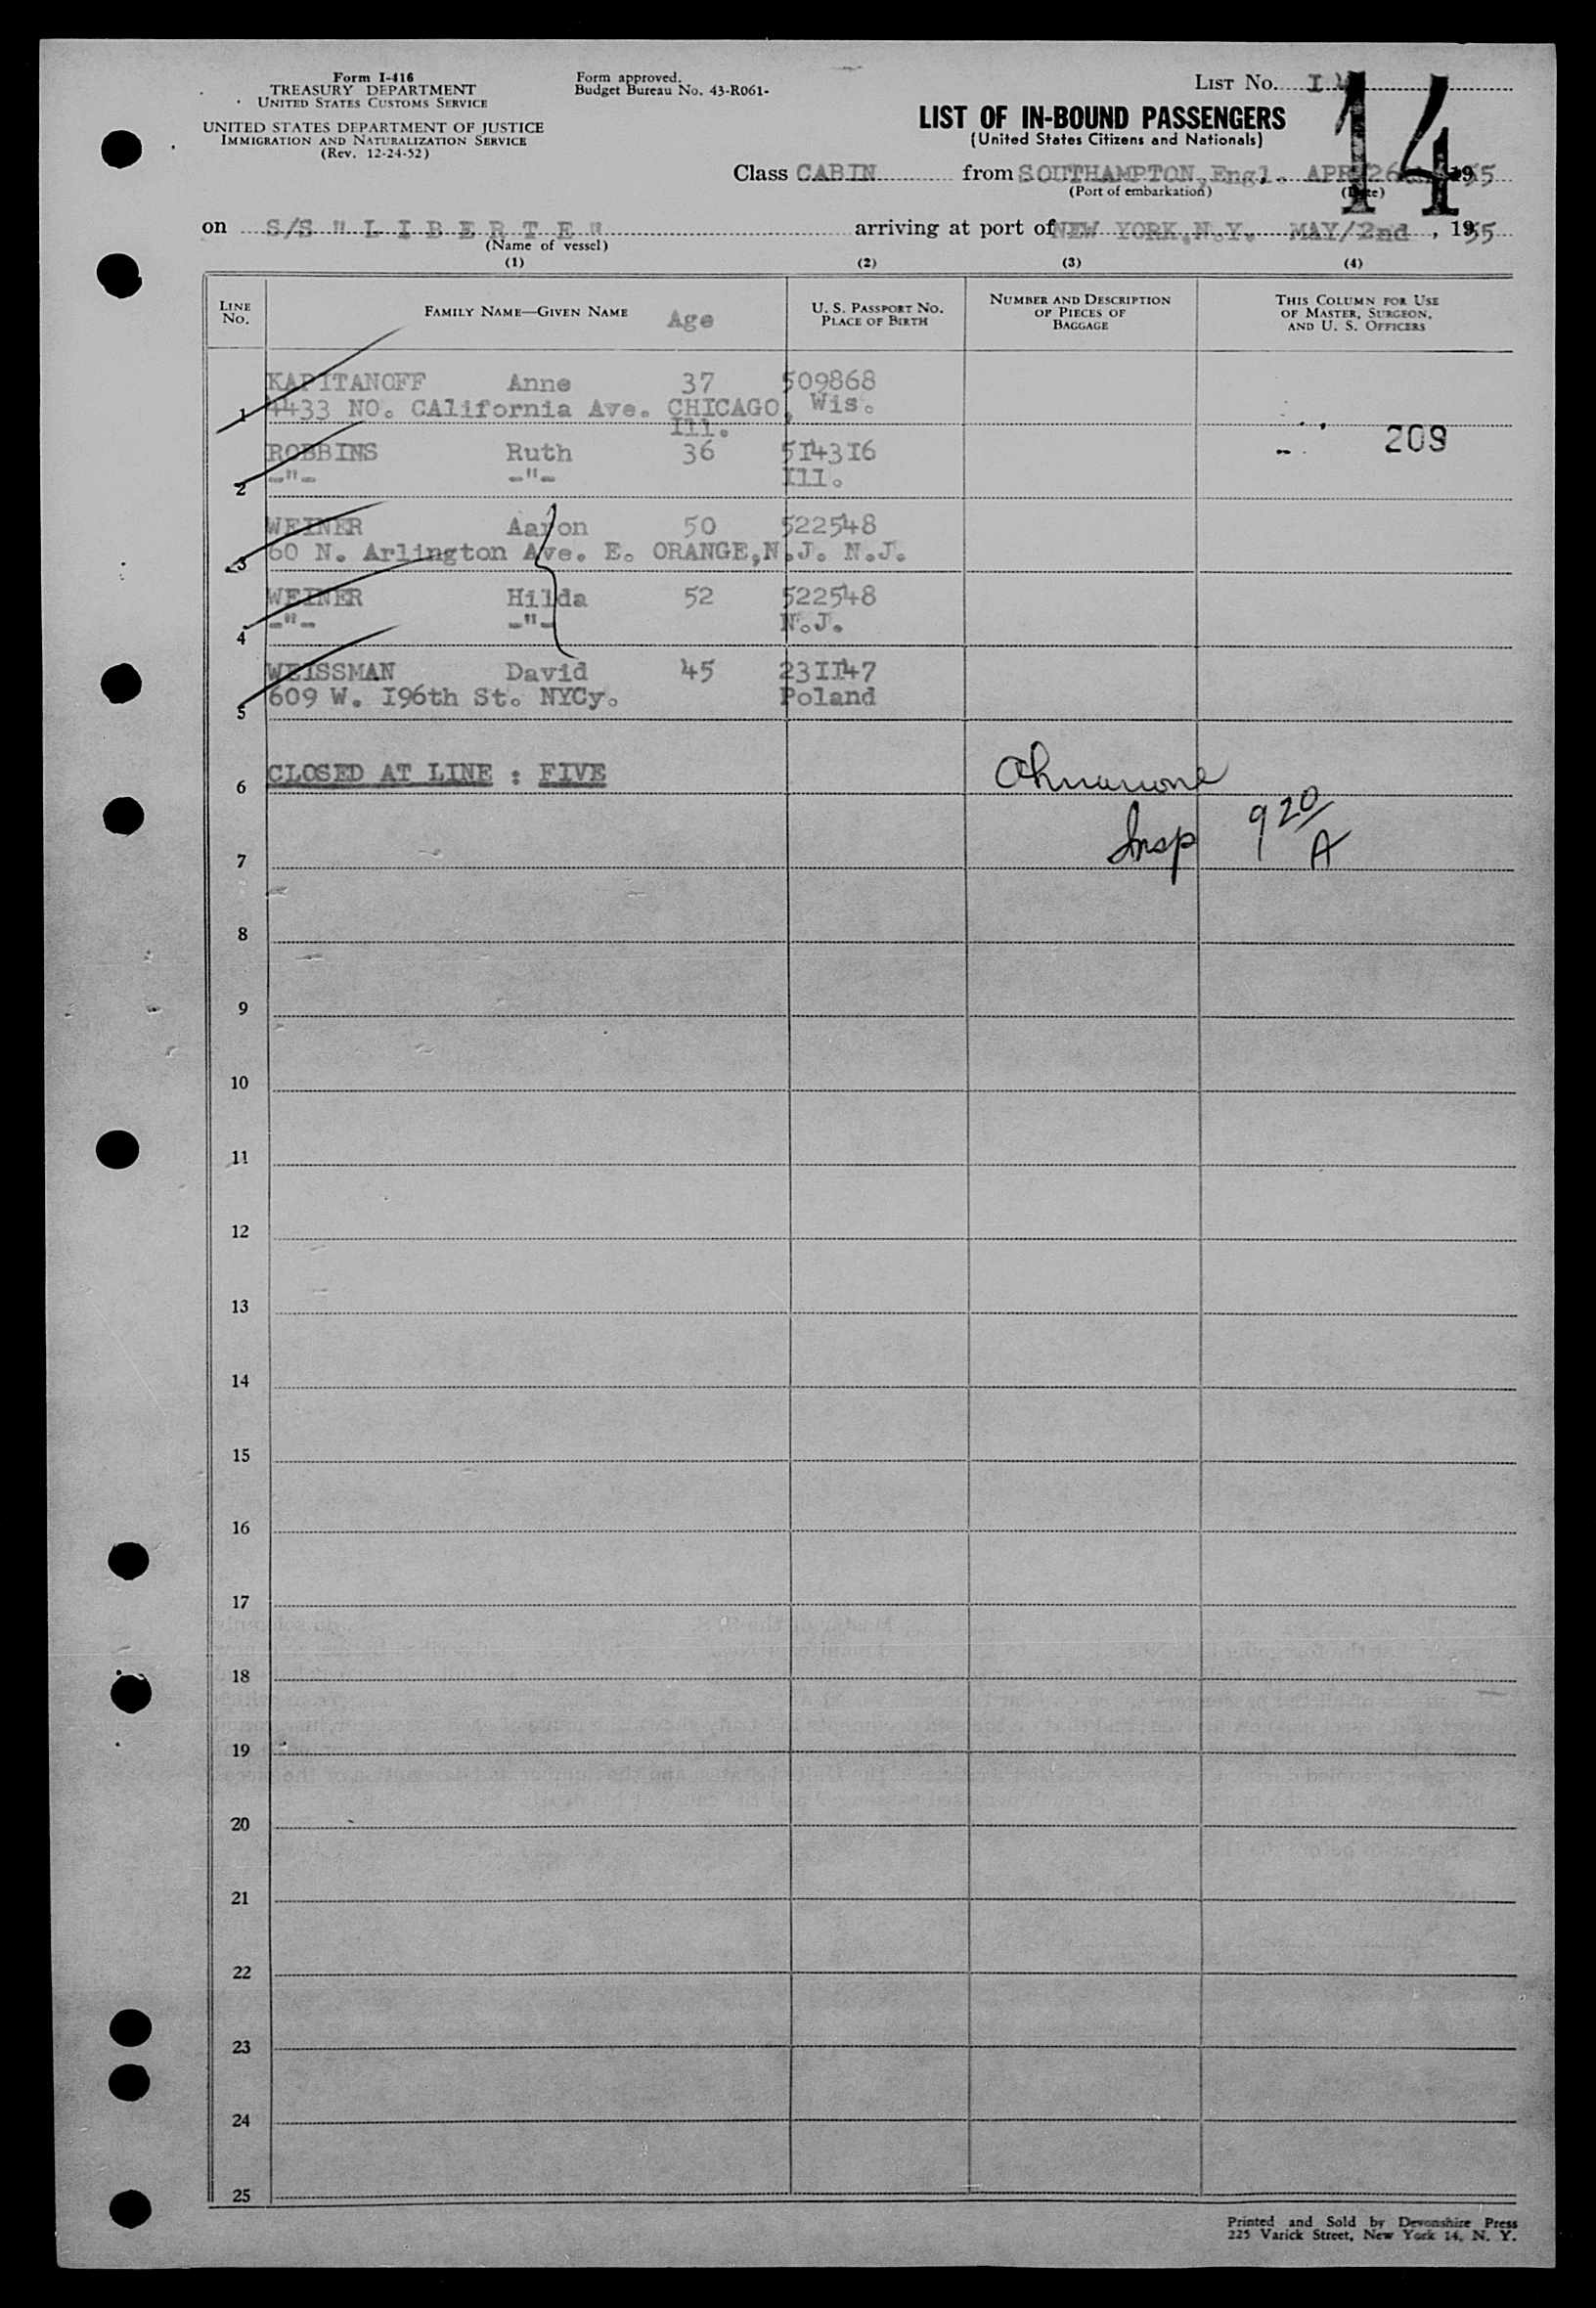 Form I-416
TREASURY DEPARTMENT
UNITED STATES CUSTOMS SERVICE
UNITED STATES DEPARTMENT OF JUSTICE
IMMIGRATION AND NATURALIZATION SERVICE
(Rev. 12-24-52)
Form approved.
Budget Bureau No. 43-R061-
LIST No. I4
14
LIST OF IN-BOUND PASSENGERS
(United States Citizens and Nationals)
Class CABIN from SOUTHAMPTON, Engl. APR/26 1955
(Port of embarkation) (Date)
on S/S " L I B E R T E " arriving at port of NEW YORK,N.Y. MAY/2nd , 1955
(Name of vessel)
(1) (2) (3) (4)
LINE No. FAMILY NAME—GIVEN NAME Age U. S. PASSPORT No. PLACE OF BIRTH NUMBER AND DESCRIPTION OF PIECES OF BAGGAGE THIS COLUMN FOR USE OF MASTER, SURGEON, AND U. S. OFFICERS
KAPITANOFF Anne 37 509868
1 4433 NO. CAlifornia Ave. CHICAGO, Wis.
Ill.
209
ROBBINS Ruth 36 5I43I6
2 -"- -"- Ill.
WEINER Aaron 50 522548
3 60 N. Arlington Ave. E. ORANGE,N.J. N.J.
WEINER Hilda 52 522548
4 -"- -"- N.J.
WEISSMAN David 45 23II47
5 609 W. I96th St. NYCy. Poland
6 CLOSED AT LINE : FIVE
7 Insp 9 20 A
8
9
10
11
12
13
14
15
16
17
18
19
20
21
22
23
24
25
Printed and Sold by Devonshire Press
225 Varick Street, New York 14, N. Y.